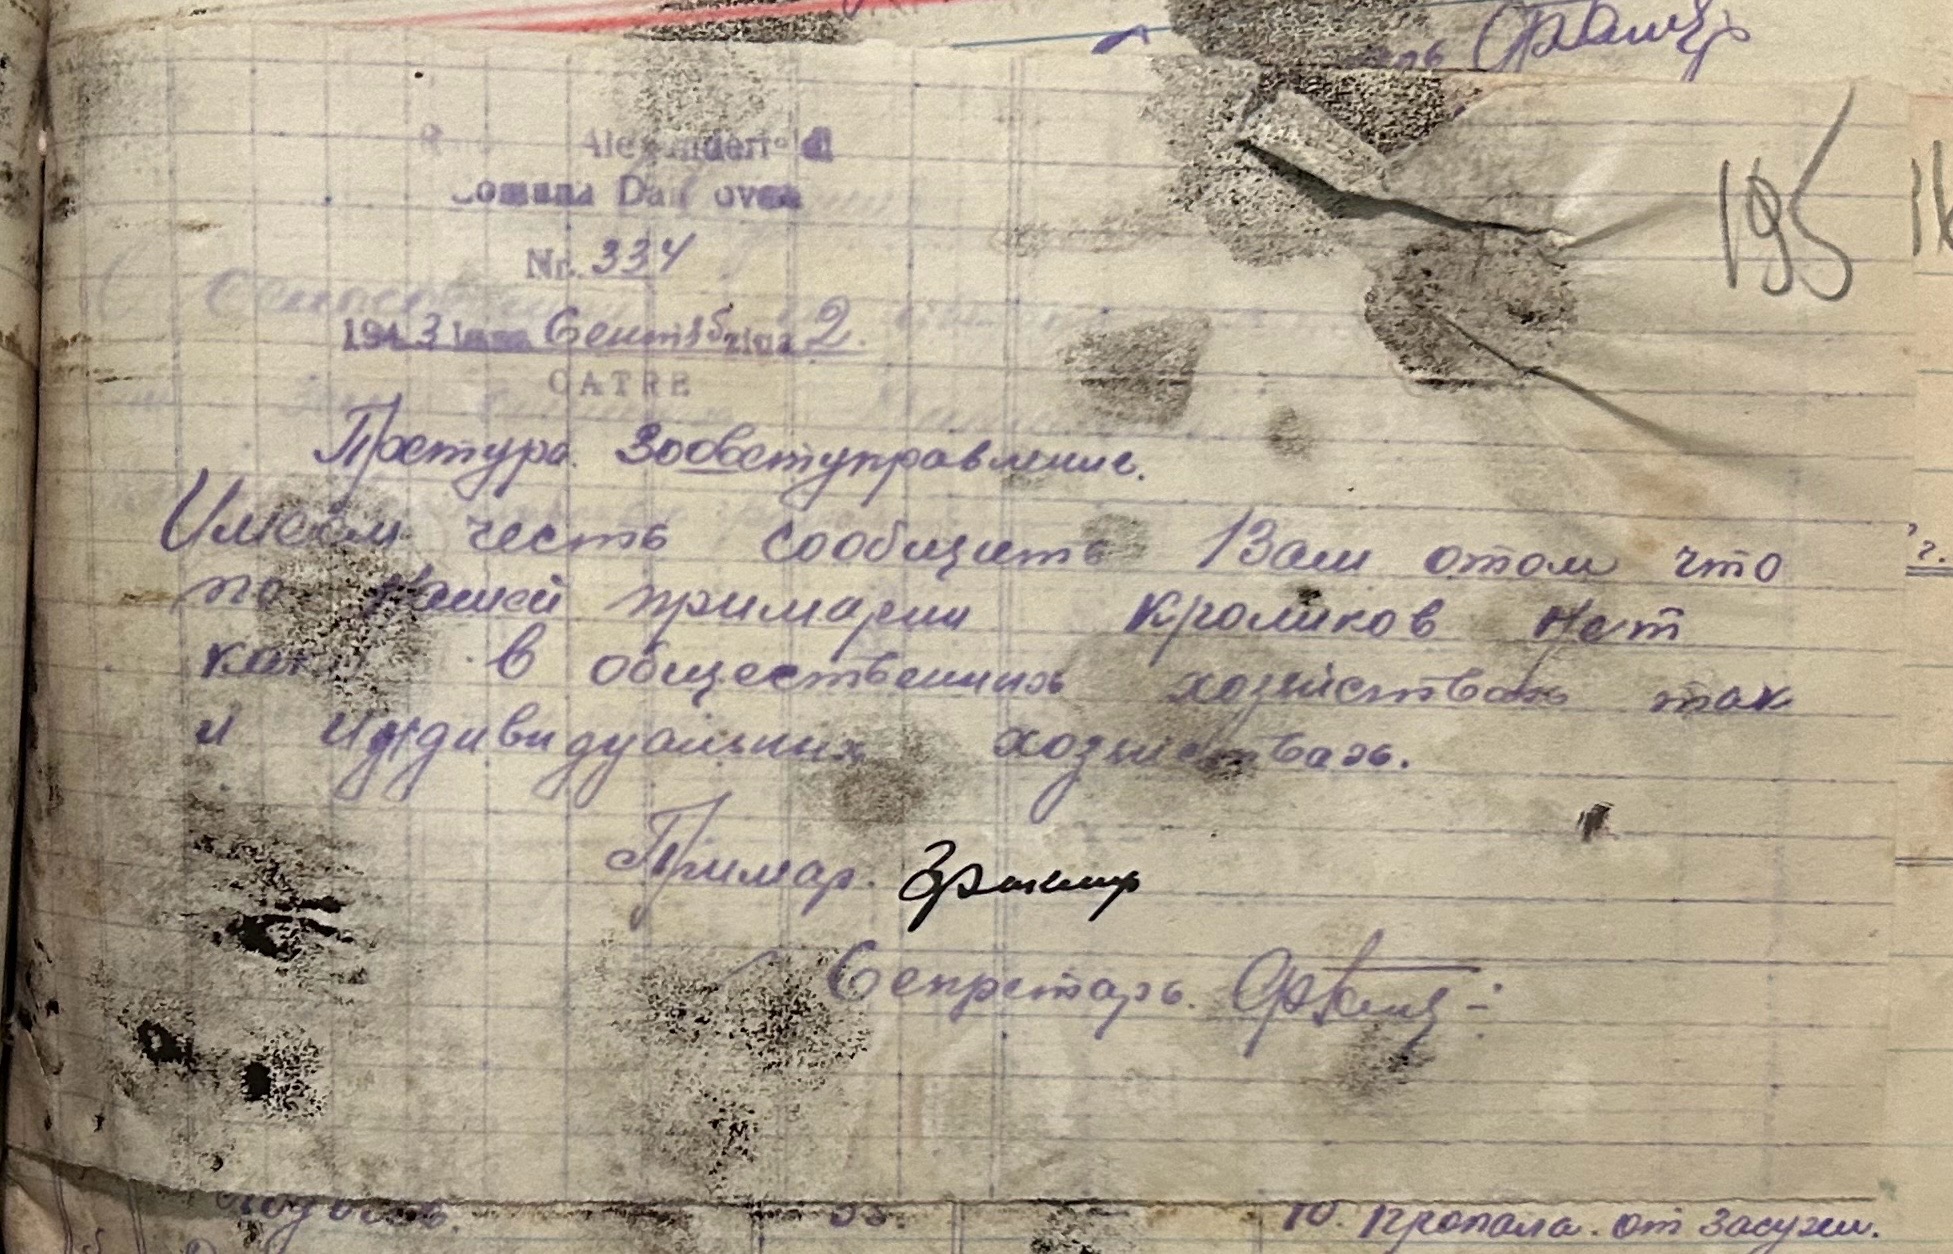 195
Comuna
Nr. 334
1943 luna Сентяб ziua 2.
CATRE
Претура Зооветуправление.
Имеем честь сообщить Вам отом что
по нашей примарии кроликов нет
как в общественнихь хозяйствахь так
и индивидуальних хозяйствахь.
Примар.
Секретарь.
10. пропала от засухи.